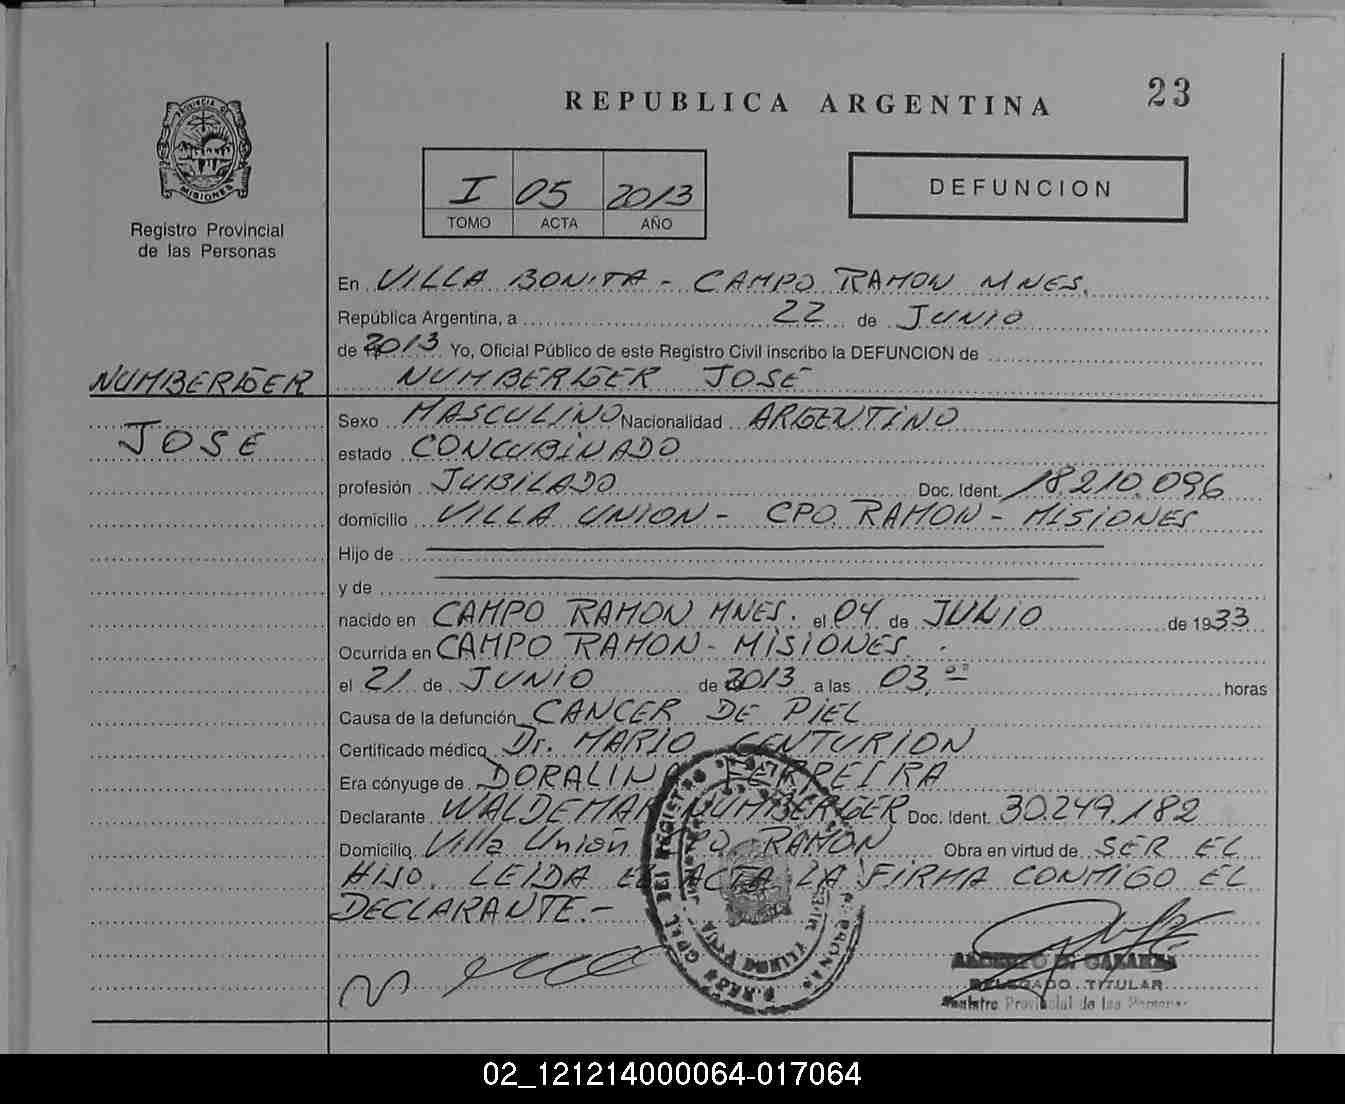 23
REPUBLICA ARGENTINA
PROVINCIA DE
MISIONES
Registro Provincial
de las Personas
I 05 2013
TOMO ACTA AÑO
DEFUNCION
En VILLA BONITA - CAMPO RAMON MNES.
República Argentina, a 22 de JUNIO
de 2013 Yo, Oficial Público de este Registro Civil inscribo la DEFUNCION de
NUMBERGER NUMBERGER JOSE
JOSE
Sexo MASCULINO Nacionalidad ARGENTINO
estado CONCUBINADO
profesión JUBILADO Doc. Ident. 18.210.096
domicilio VILLA UNION - CPO. RAMON - MISIONES
Hijo de
y de
nacido en CAMPO RAMON MNES. el 04 de JULIO de 1933
Ocurrida en CAMPO RAMON - MISIONES.
el 21 de JUNIO de 2013 a las 03,ºº horas
Causa de la defunción CANCER DE PIEL
Certificado médico Dr. MARIO CENTURION
Era cónyuge de DORALINA FERREIRA
Declarante WALDEMAR NUMBERGER Doc. Ident. 30.249.182
Domicilio Villa Unión CPO RAMON Obra en virtud de SER EL
HIJO. LEIDA EL ACTA LA FIRMA CONMIGO EL
DECLARANTE.-
DELEGADO TITULAR
Registro Provincial de las Personas
02_121214000064-017064